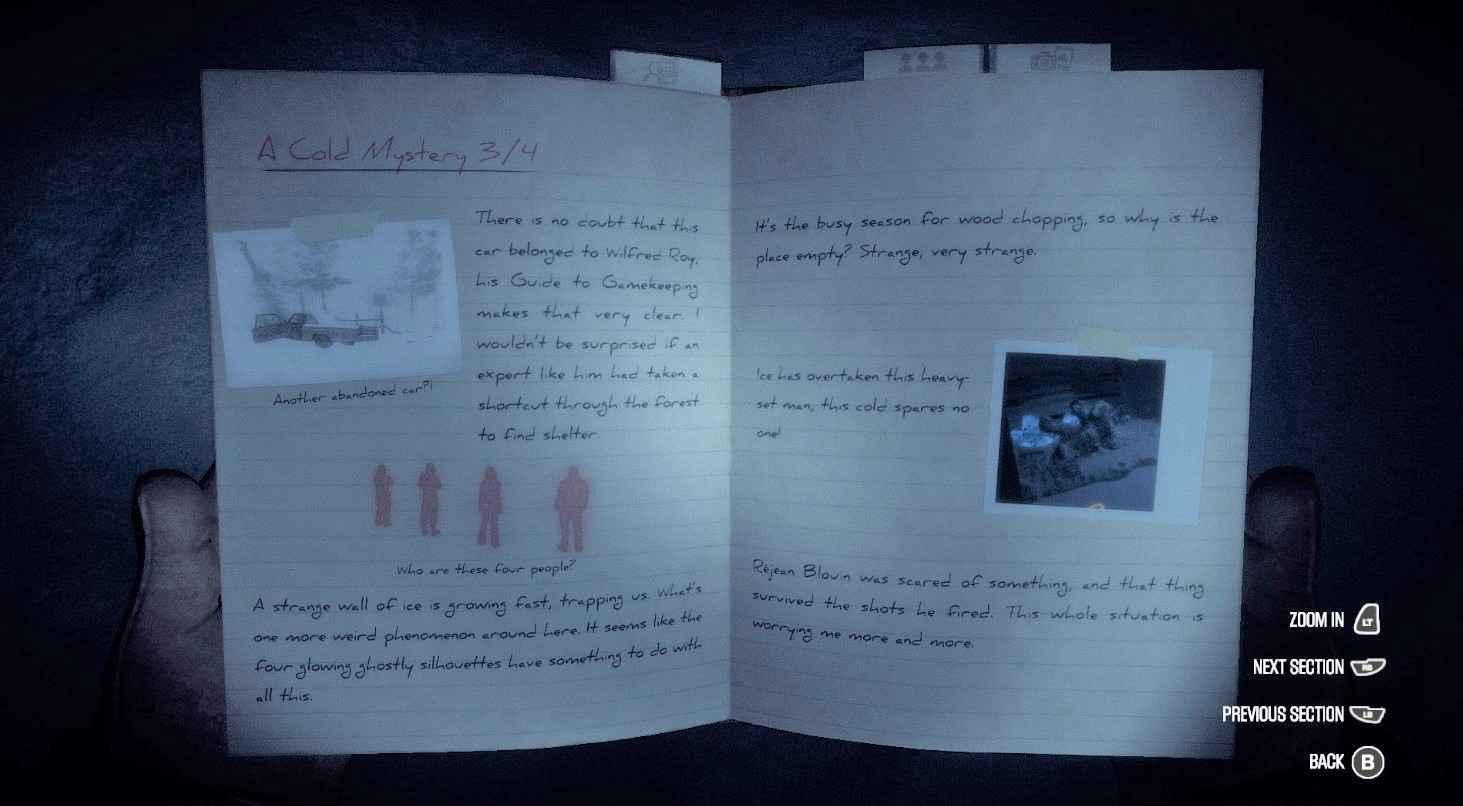 A Cold Mystery 3/4
There is no doubt that this
car belonged to Wilfred Roy,
his Guide to Gamekeeping
makes that very clear. I
wouldn't be surprised if an
expert like him had taken a
shortcut through the forest
to find shelter.
Another abandoned car?!
Who are these four people?
A strange wall of ice is growing fast, trapping us. What's
one more weird phenomenon around here. It seems like the
four glowing ghostly silhouettes have something to do with
all this.
It's the busy season for wood chopping, so why is the
place empty? Strange, very strange.
Ice has overtaken this heavy-
set man, this cold spares no
one!
Réjean Blouin was scared of something, and that thing
survived the shots he fired. This whole situation is
worrying me more and more.
ZOOM IN LT
NEXT SECTION RB
PREVIOUS SECTION LB
BACK B